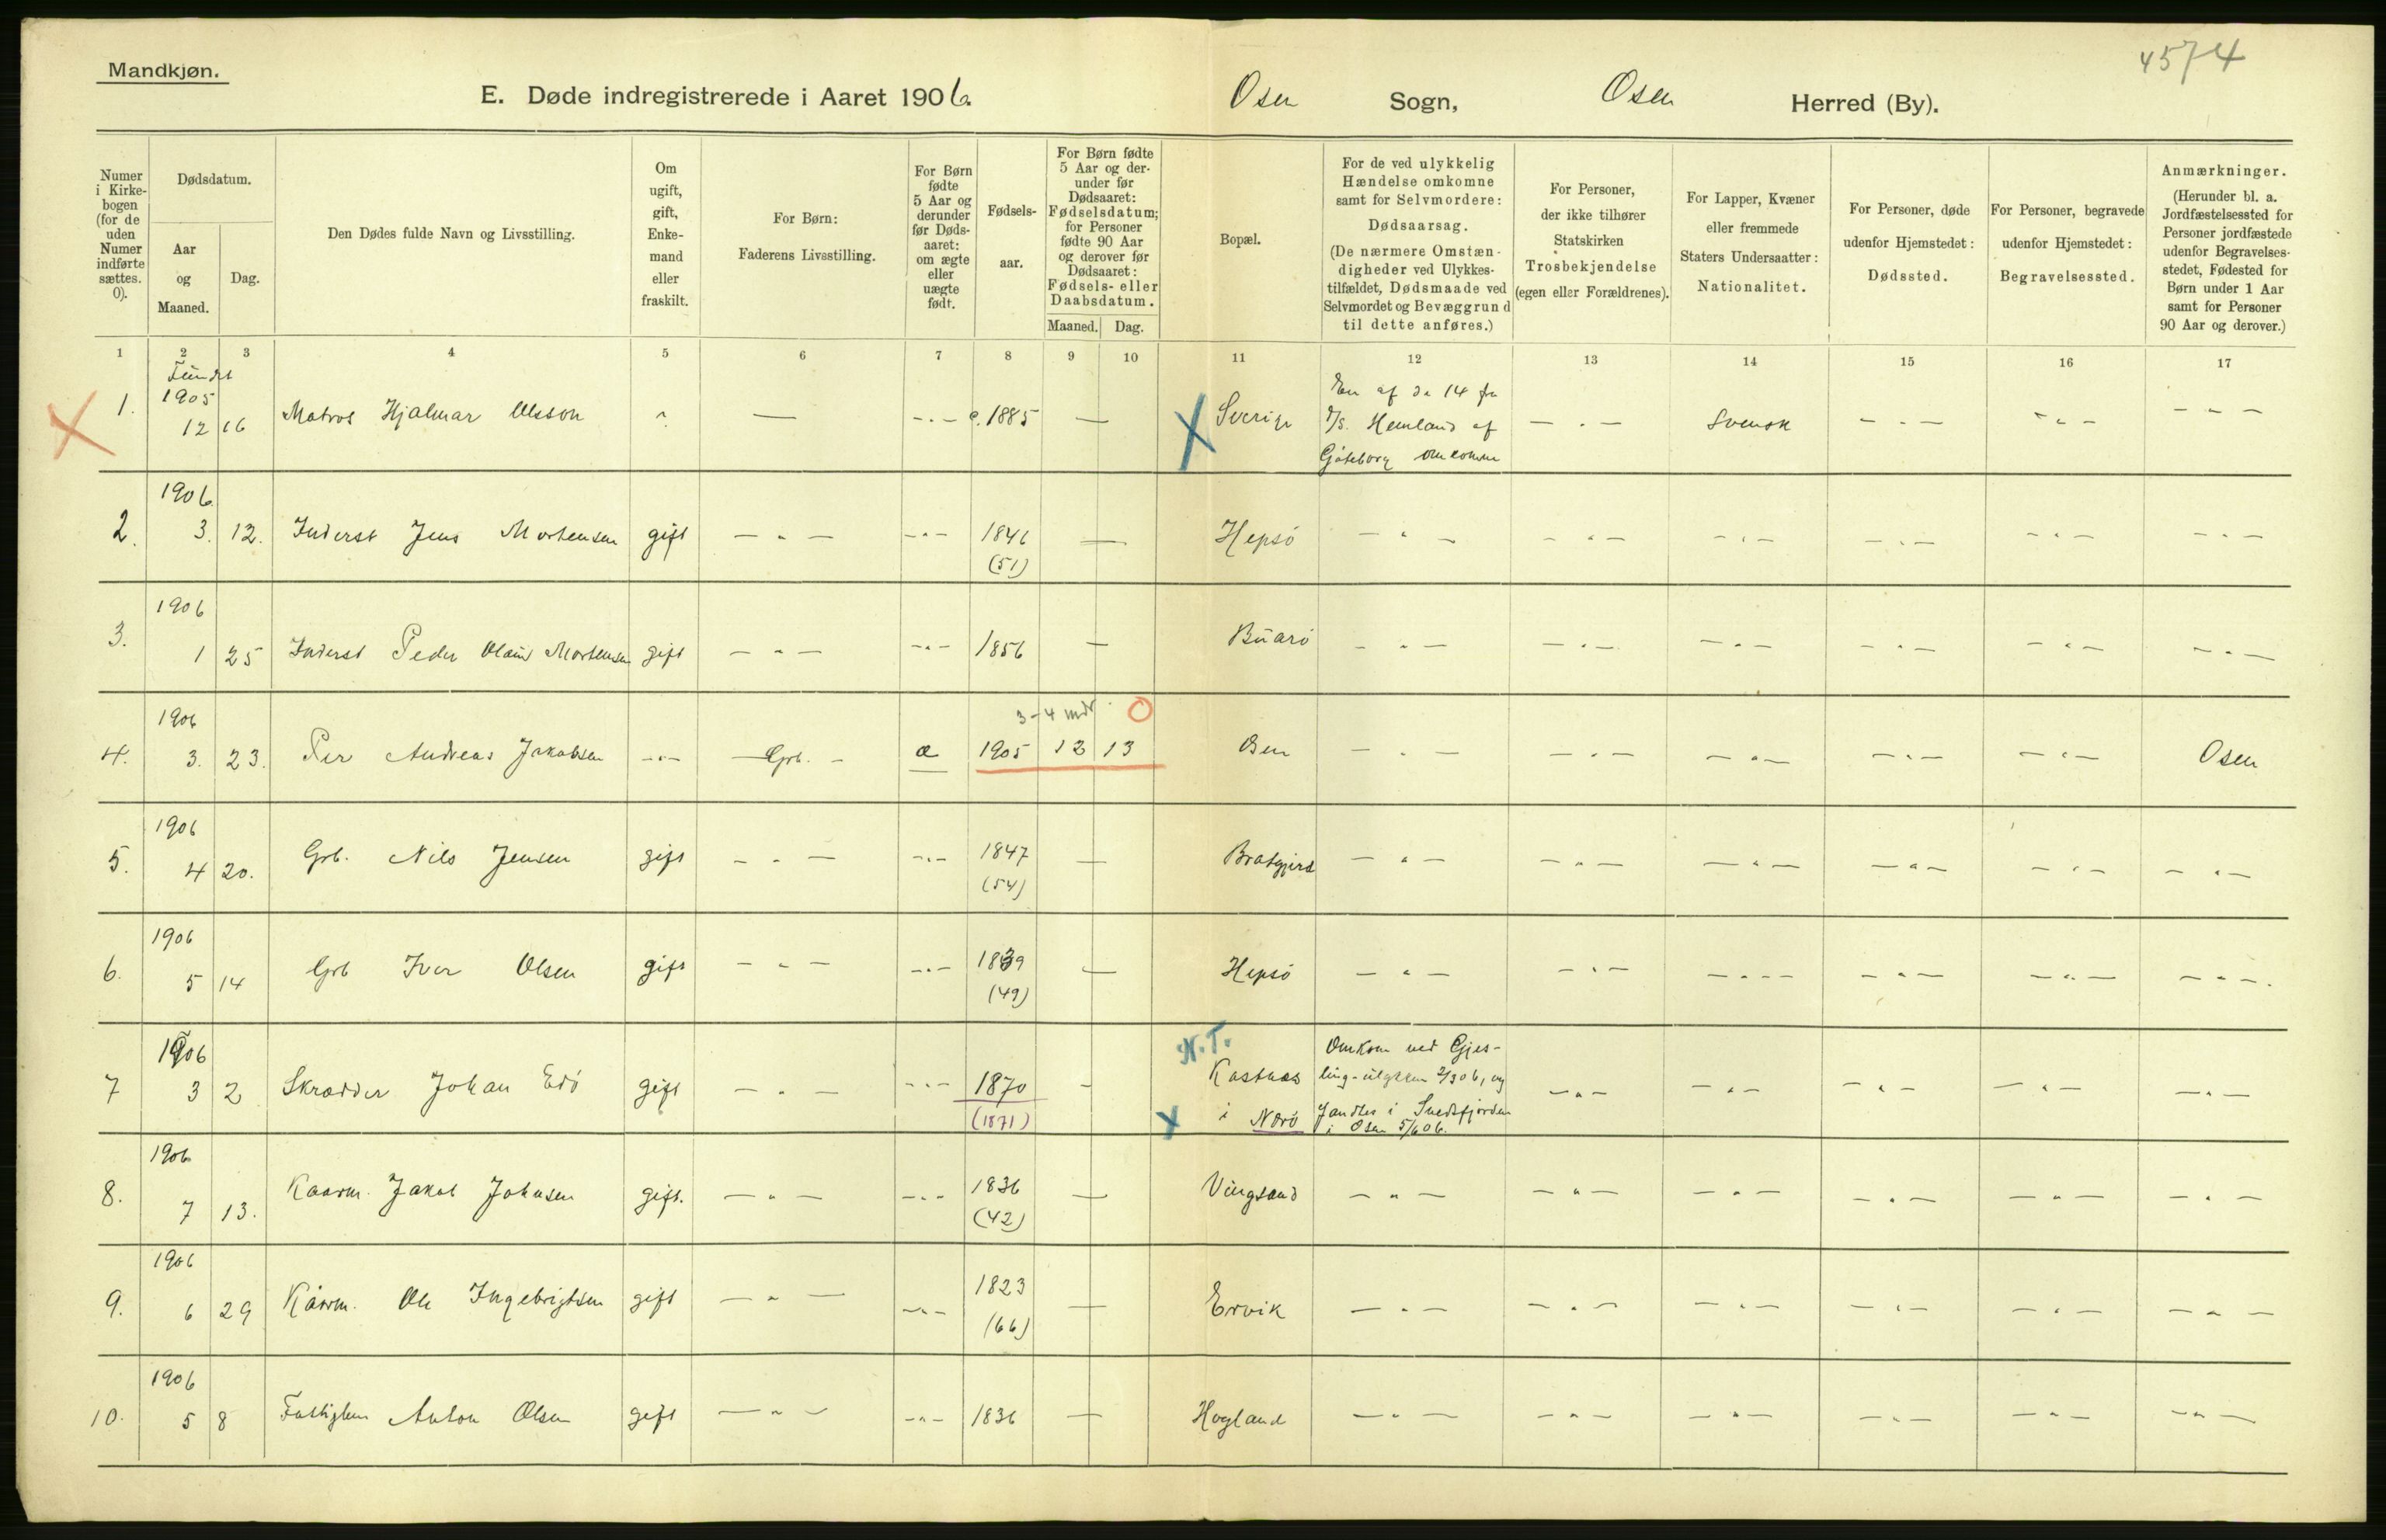 4574
Mandkjøn.
E. Døde indregistrerede i Aaret 1906.
Osen Sogn, Osen Herred (By).
Numer i Kirkebogen (for de uden Numer indførte sættes. 0).
Dødsdatum.
Aar og Maaned.
Dag.
Den Dødes fulde Navn og Livsstilling.
Om ugift, gift, Enkemand eller fraskilt.
For Børn:
Faderens Livsstilling.
For Børn fødte 5 Aar og derunder før Dødsaaret: om ægte eller uægte født.
Fødselsaar.
For Børn fødte 5 Aar og derunder før Dødsaaret: Fødselsdatum; for Personer fødte 90 Aar og derover før Dødsaaret: Fødsels- eller Daabsdatum.
Maaned. Dag.
Bopæl.
For de ved ulykkelig Hændelse omkomne samt for Selvmordere:
Dødsaarsag.
(De nærmere Omstændigheder ved Ulykkestilfældet, Dødsmaade ved Selvmordet og Bevæggrund til dette anføres.)
For Personer, der ikke tilhører Statskirken
Trosbekjendelse
(egen eller Forældrenes).
For Lapper, Kvæner eller fremmede Staters Undersaatter:
Nationalitet.
For Personer, døde udenfor Hjemstedet:
Dødssted.
For Personer, begravede udenfor Hjemstedet:
Begravelsessted.
Anmærkninger.
(Herunder bl. a. Jordfæstelsessted for Personer jordfæstede udenfor Begravelsesstedet, Fødested for Børn under 1 Aar samt for Personer 90 Aar og derover.)
1 2 3 4 5 6 7 8 9 10 11 12 13 14 15 16 17
Fundet
1905
1. 12 16 Matros Hjalmar Olsson — - - — c. 1885 — Sverige En af de 14 fra
D/S. Hemland af
Gøteborg omkomne
— - — Svensk — - — - - - - - -
1906
2. 3. 12. Inderst Jens Mortensen gift — - — 1846 — Hepsö
(51)
1906
3. 1 25 Inderst Peder Olaus Mortensen gift — - — 1856 — Buarö
1906
3-4 mdr. O
4. 3. 23. Per Andreas Jakobsen - - - Grb. - æ 1905 12 13 Osen Osen
1906
5. 4 20. Grb. Nils Jensen gift — - — 1847 — Bratgjerd
(54)
1906
6. 5 14 Grb Iver Olsen gift — - — 1839 — Hepsö
(49)
1906
7 3 2 Skrædder Johan Edö gift — - — 1870 - N.T.
Kastnes
i Nærö
(1871)
Omkom ved Gjes-
ling-ulykken 2/3 06, og
fandtes i Svedsfjorden
i Osen 5/6 06.
1906
8. 7 13. Kaarm. Jakob Johnsen gift. — - — 1836 — Vingsand
(42)
1906
9. 6 29 Kårm. Ole Ingebrigtsen gift — - — 1823 — Ervik
(66)
1906
10. 5 8 Fattiglem Anton Olsen gift — - — 1836 — Hogland